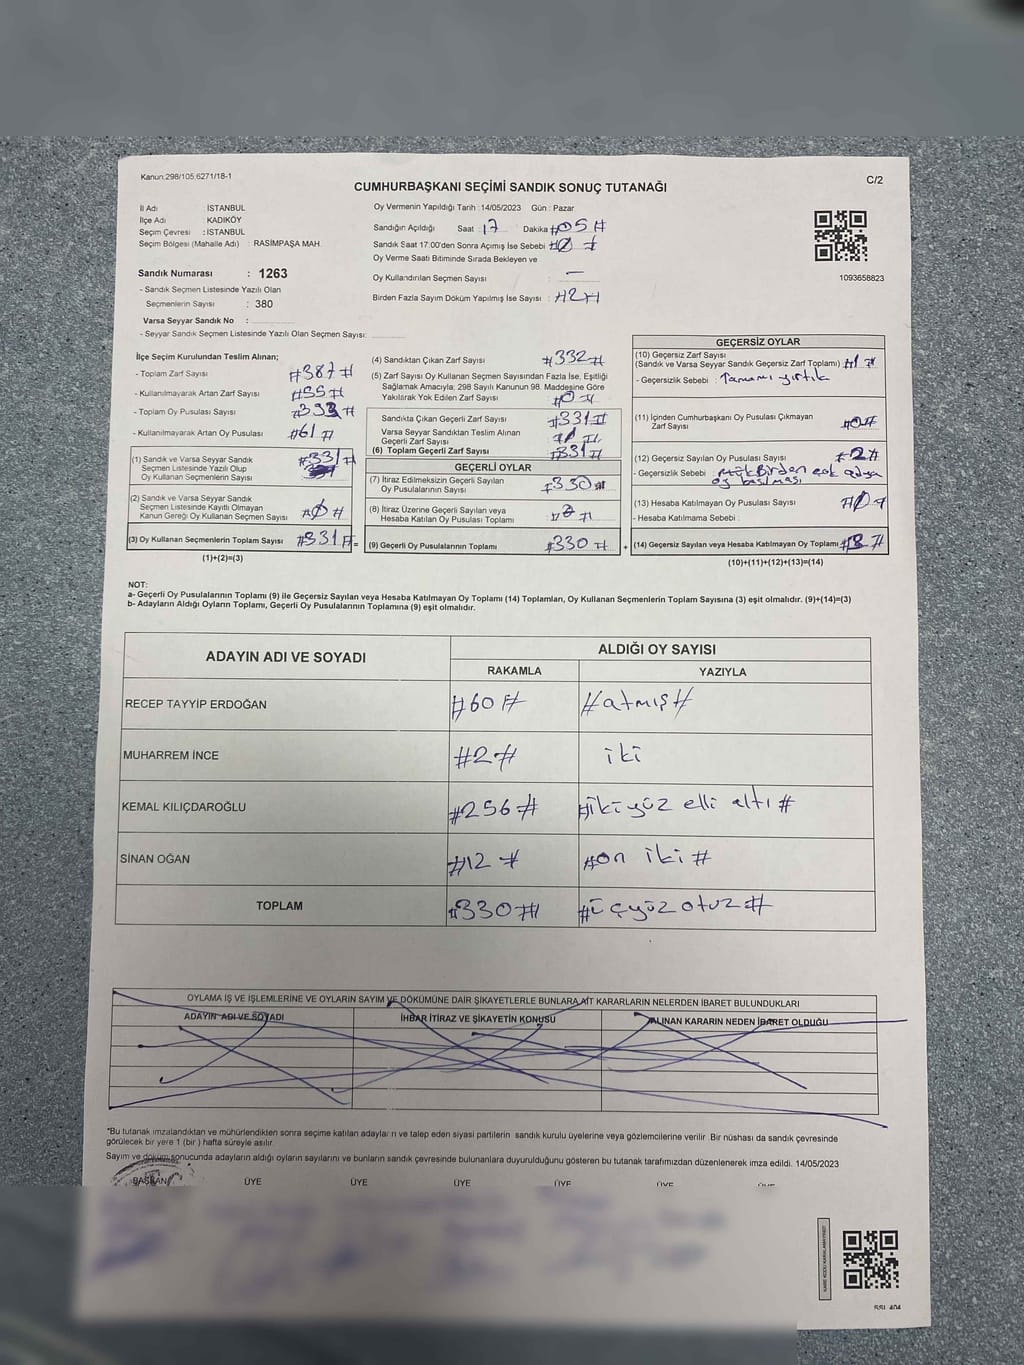 Kanun:298/105,6271/18-1
C/2
CUMHURBAŞKANI SEÇİMİ SANDIK SONUÇ TUTANAĞI
İl Adı : İSTANBUL
İlçe Adı : KADIKÖY
Seçim Çevresi : İSTANBUL
Seçim Bölgesi (Mahalle Adı) : RASİMPAŞA MAH.
Sandık Numarası : 1263
- Sandık Seçmen Listesinde Yazılı Olan
Seçmenlerin Sayısı : 380
Varsa Seyyar Sandık No :
- Seyyar Sandık Seçmen Listesinde Yazılı Olan Seçmen Sayısı:
Oy Vermenin Yapıldığı Tarih :14/05/2023 Gün : Pazar
Sandığın Açıldığı Saat : 17 Dakika : #05#
Sandık Saat 17:00'den Sonra Açımış İse Sebebi : #0#
Oy Verme Saati Bitiminde Sırada Bekleyen ve
Oy Kullandırılan Seçmen Sayısı : —
Birden Fazla Sayım Döküm Yapılmış İse Sayısı : #2#
1093658823
İlçe Seçim Kurulundan Teslim Alınan;
- Toplam Zarf Sayısı : #387#
- Kullanılmayarak Artan Zarf Sayısı : #55#
- Toplam Oy Pusulası Sayısı :
- Kullanılmayarak Artan Oy Pusulası : #61#
(1) Sandık ve Varsa Seyyar Sandık
Seçmen Listesinde Yazılı Olup
Oy Kullanan Seçmenlerin Sayısı : #331#
(2) Sandık ve Varsa Seyyar Sandık
Seçmen Listesinde Kayıtlı Olmayan
Kanun Gereği Oy Kullanan Seçmen Sayısı : #0#
(3) Oy Kullanan Seçmenlerin Toplam Sayısı : #331# =
(1)+(2)=(3)
(4) Sandıktan Çıkan Zarf Sayısı : #332#
(5) Zarf Sayısı Oy Kullanan Seçmen Sayısından Fazla İse, Eşitliği
Sağlamak Amacıyla; 298 Sayılı Kanunun 98. Maddesine Göre
Yakılarak Yok Edilen Zarf Sayısı : #0#
Sandıkta Çıkan Geçerli Zarf Sayısı : #331#
Varsa Seyyar Sandıktan Teslim Alınan
Geçerli Zarf Sayısı :
(6) Toplam Geçerli Zarf Sayısı : #331#
GEÇERLİ OYLAR
(7) İtiraz Edilmeksizin Geçerli Sayılan
Oy Pusulalarının Sayısı : #330#
(8) İtiraz Üzerine Geçerli Sayılan veya
Hesaba Katılan Oy Pusulası Toplamı :
(9) Geçerli Oy Pusulalarının Toplamı : #330# +
GEÇERSİZ OYLAR
(10) Geçersiz Zarf Sayısı
(Sandık ve Varsa Seyyar Sandık Geçersiz Zarf Toplamı) : #1#
- Geçersizlik Sebebi : Tamamı yırtık
(11) İçinden Cumhurbaşkanı Oy Pusulası Çıkmayan
Zarf Sayısı : #0#
(12) Geçersiz Sayılan Oy Pusulası Sayısı : #2#
- Geçersizlik Sebebi : Birden çok adaya
oy basılması
(13) Hesaba Katılmayan Oy Pusulası Sayısı : #0#
- Hesaba Katılmama Sebebi :
(14) Geçersiz Sayılan veya Hesaba Katılmayan Oy Toplamı :
(10)+(11)+(12)+(13)=(14)
NOT:
a- Geçerli Oy Pusulalarının Toplamı (9) ile Geçersiz Sayılan veya Hesaba Katılmayan Oy Toplamı (14) Toplamları, Oy Kullanan Seçmenlerin Toplam Sayısına (3) eşit olmalıdır. (9)+(14)=(3)
b- Adayların Aldığı Oyların Toplamı, Geçerli Oy Pusulalarının Toplamına (9) eşit olmalıdır.
ADAYIN ADI VE SOYADI
ALDIĞI OY SAYISI
RAKAMLA YAZIYLA
RECEP TAYYİP ERDOĞAN #60# #atmış#
MUHARREM İNCE #2# iki
KEMAL KILIÇDAROĞLU #256# #ikiyüz elli altı#
SİNAN OĞAN #12# #on iki#
TOPLAM #330# #üçyüz otuz#
OYLAMA İŞ VE İŞLEMLERİNE VE OYLARIN SAYIM VE DÖKÜMÜNE DAİR ŞİKAYETLERLE BUNLARA AİT KARARLARIN NELERDEN İBARET BULUNDUKLARI
ADAYIN ADI VE SOYADI İHBAR İTİRAZ VE ŞİKAYETİN KONUSU ALINAN KARARIN NEDEN İBARET OLDUĞU
*Bu tutanak imzalandıktan ve mühürlendikten sonra seçime katılan adayların ve talep eden siyasi partilerin sandık kurulu üyelerine veya gözlemcilerine verilir. Bir nüshası da sandık çevresinde
görülecek bir yere 1 (bir) hafta süreyle asılır.
Sayım ve döküm sonucunda adayların aldığı oyların sayılarını ve bunların sandık çevresinde bulunanlara duyurulduğunu gösteren bu tutanak tarafımızdan düzenlenerek imza edildi. 14/05/2023
BAŞKAN ÜYE ÜYE ÜYE ÜYE ÜYE